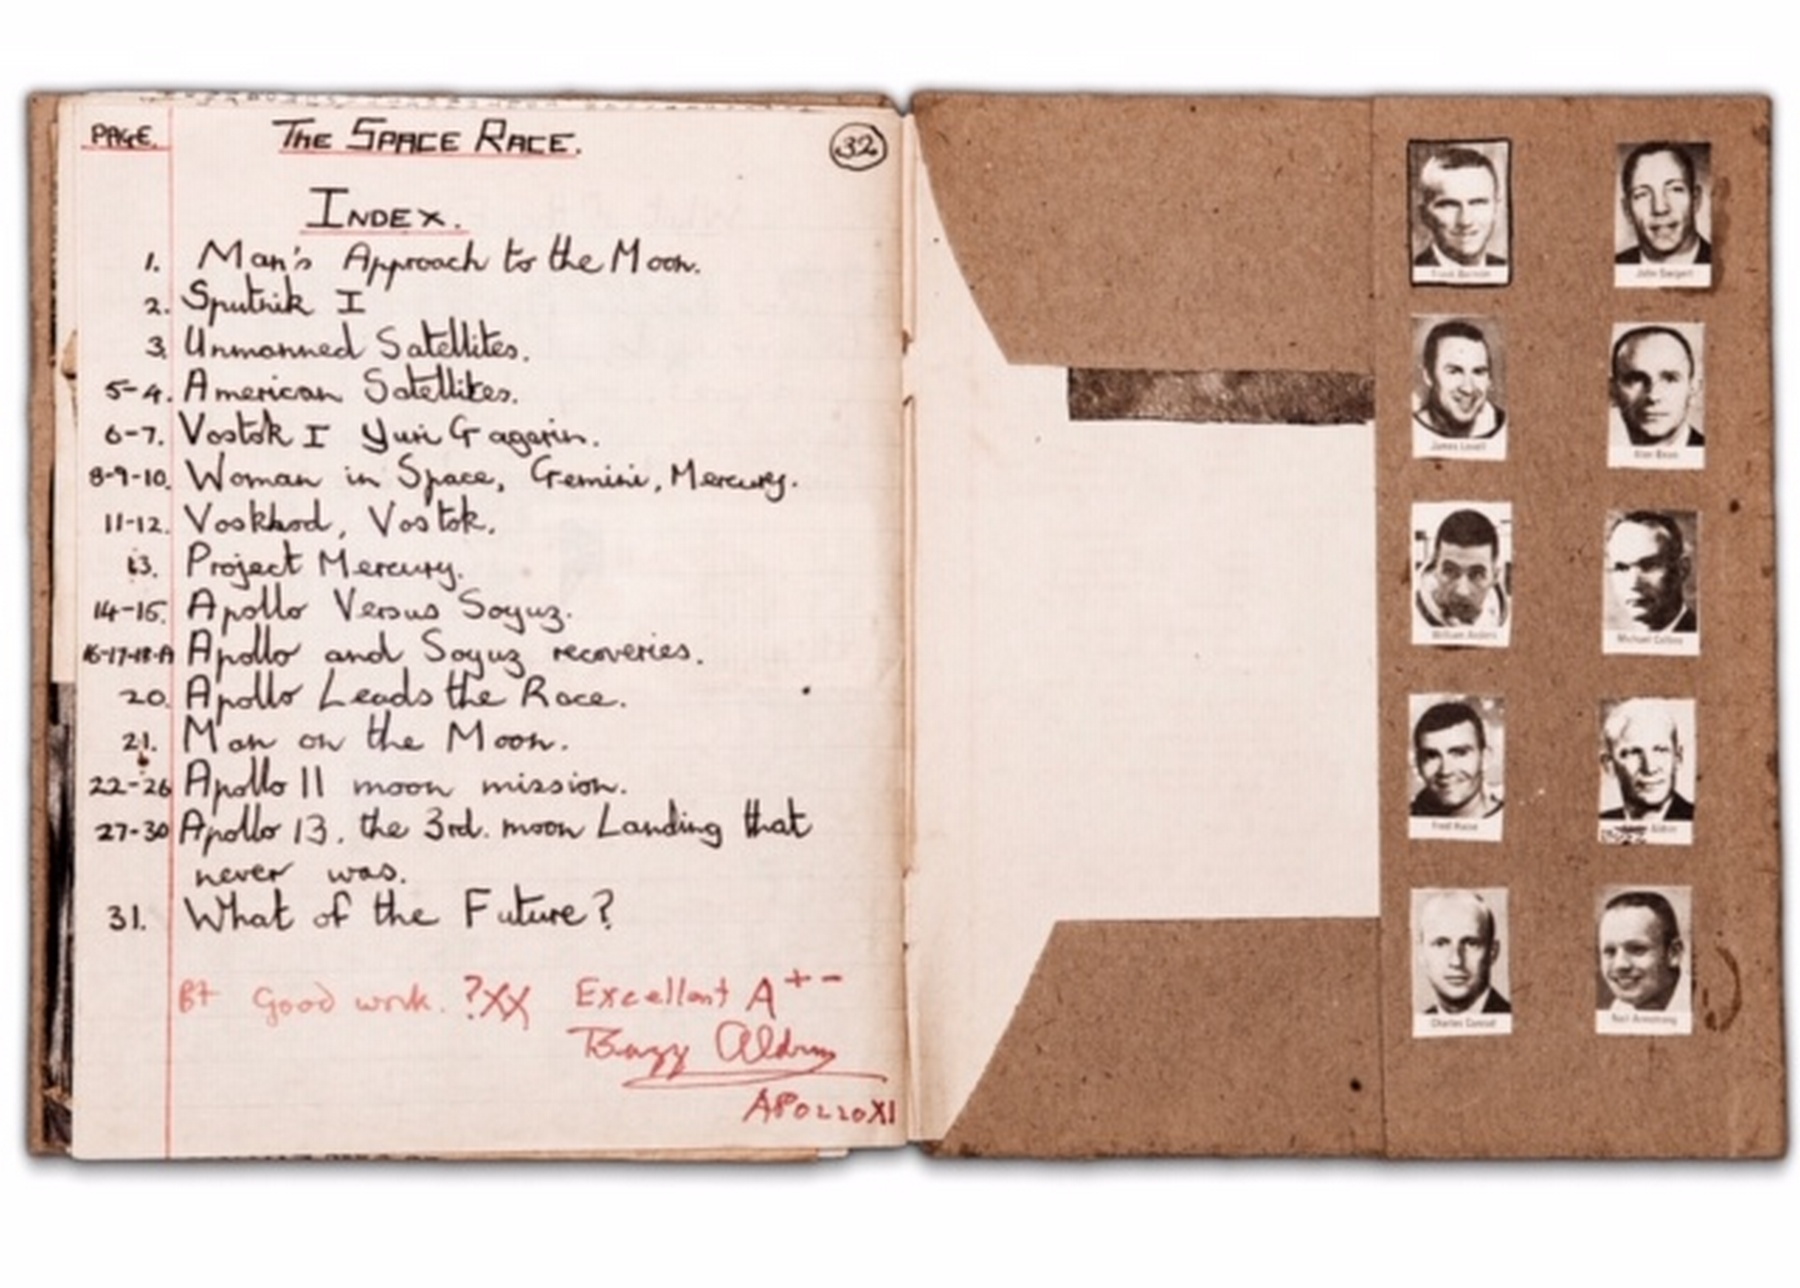 PAGE. THE SPACE RACE. 32
INDEX.
1. Man's Approach to the Moon.
2. Sputnik I
3. Unmanned Satellites.
5-4. American Satellites.
6-7. Vostok I Yuri Gagerin.
8-9-10. Woman in Space, Gemini, Mercury.
11-12. Voskhod, Vostok.
13. Project Mercury.
14-15. Apollo Versus Soyuz.
16-17-18-19 Apollo and Soyuz recoveries.
20. Apollo Leads the Race.
21. Man on the Moon.
22-26 Apollo 11 moon mission.
27-30 Apollo 13. the 3rd. moon Landing that
never was.
31. What of the Future?
B+ Good work. ?XX Excellent A+-
Buzz Aldrin
APOLLO XI
Frank Borman
John Swigert
James Lovell
Alan Bean
William Anders
Michael Collins
Fred Haise
Aldrin
Charles Conrad
Neil Armstrong